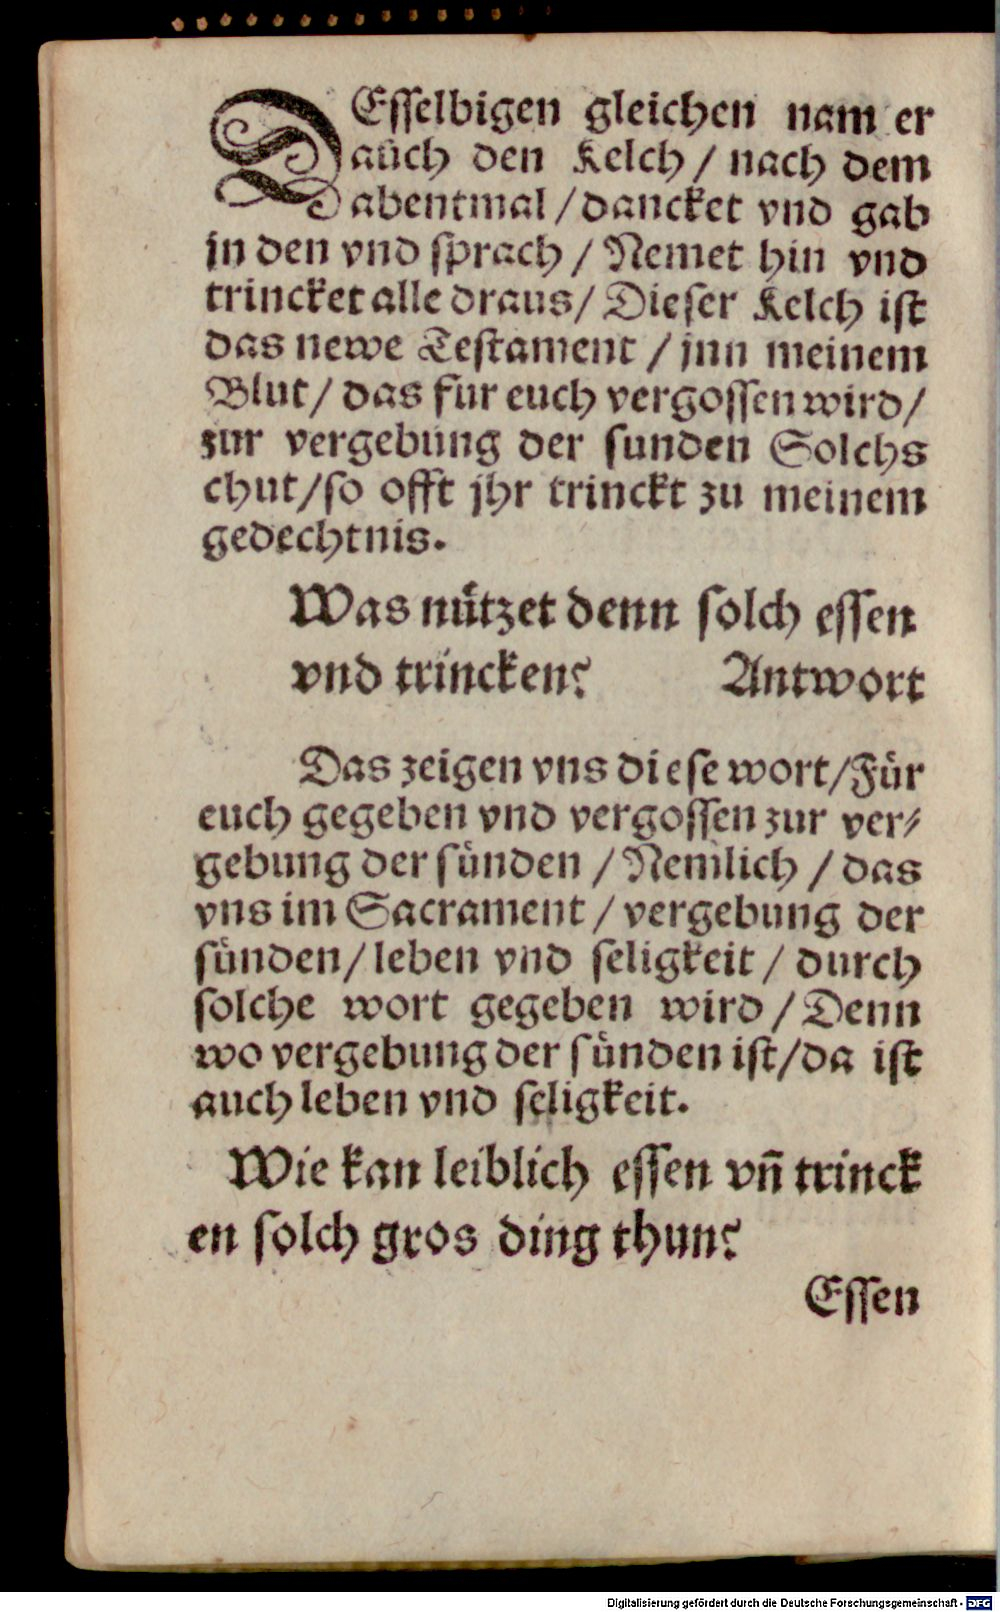 DEsselbigen gleichen nam er
auch den Kelch / nach dem
abentmal / dancket vnd gab
jn den vnd sprach / Nemet hin vnd
trincket alle draus / Dieser Kelch ist
das newe Testament / jnn meinem
Blut / das fur euch vergossen wird /
zur vergebung der sunden Solchs
thut / so offt jhr trinckt zu meinem
gedechtnis.
Was nützet denn solch essen
vnd trincken? Antwort
Das zeigen vns diese wort / Für
euch gegeben vnd vergossen zur ver⸗
gebung der sünden / Nemlich / das
vns im Sacrament / vergebung der
sünden / leben vnd seligkeit / durch
solche wort gegeben wird / Denn
wo vergebung der sünden ist / da ist
auch leben vnd seligkeit.
Wie kan leiblich essen vñ trinck
en solch gros ding thun?
Essen
Digitalisierung gefördert durch die Deutsche Forschungsgemeinschaft - DFG